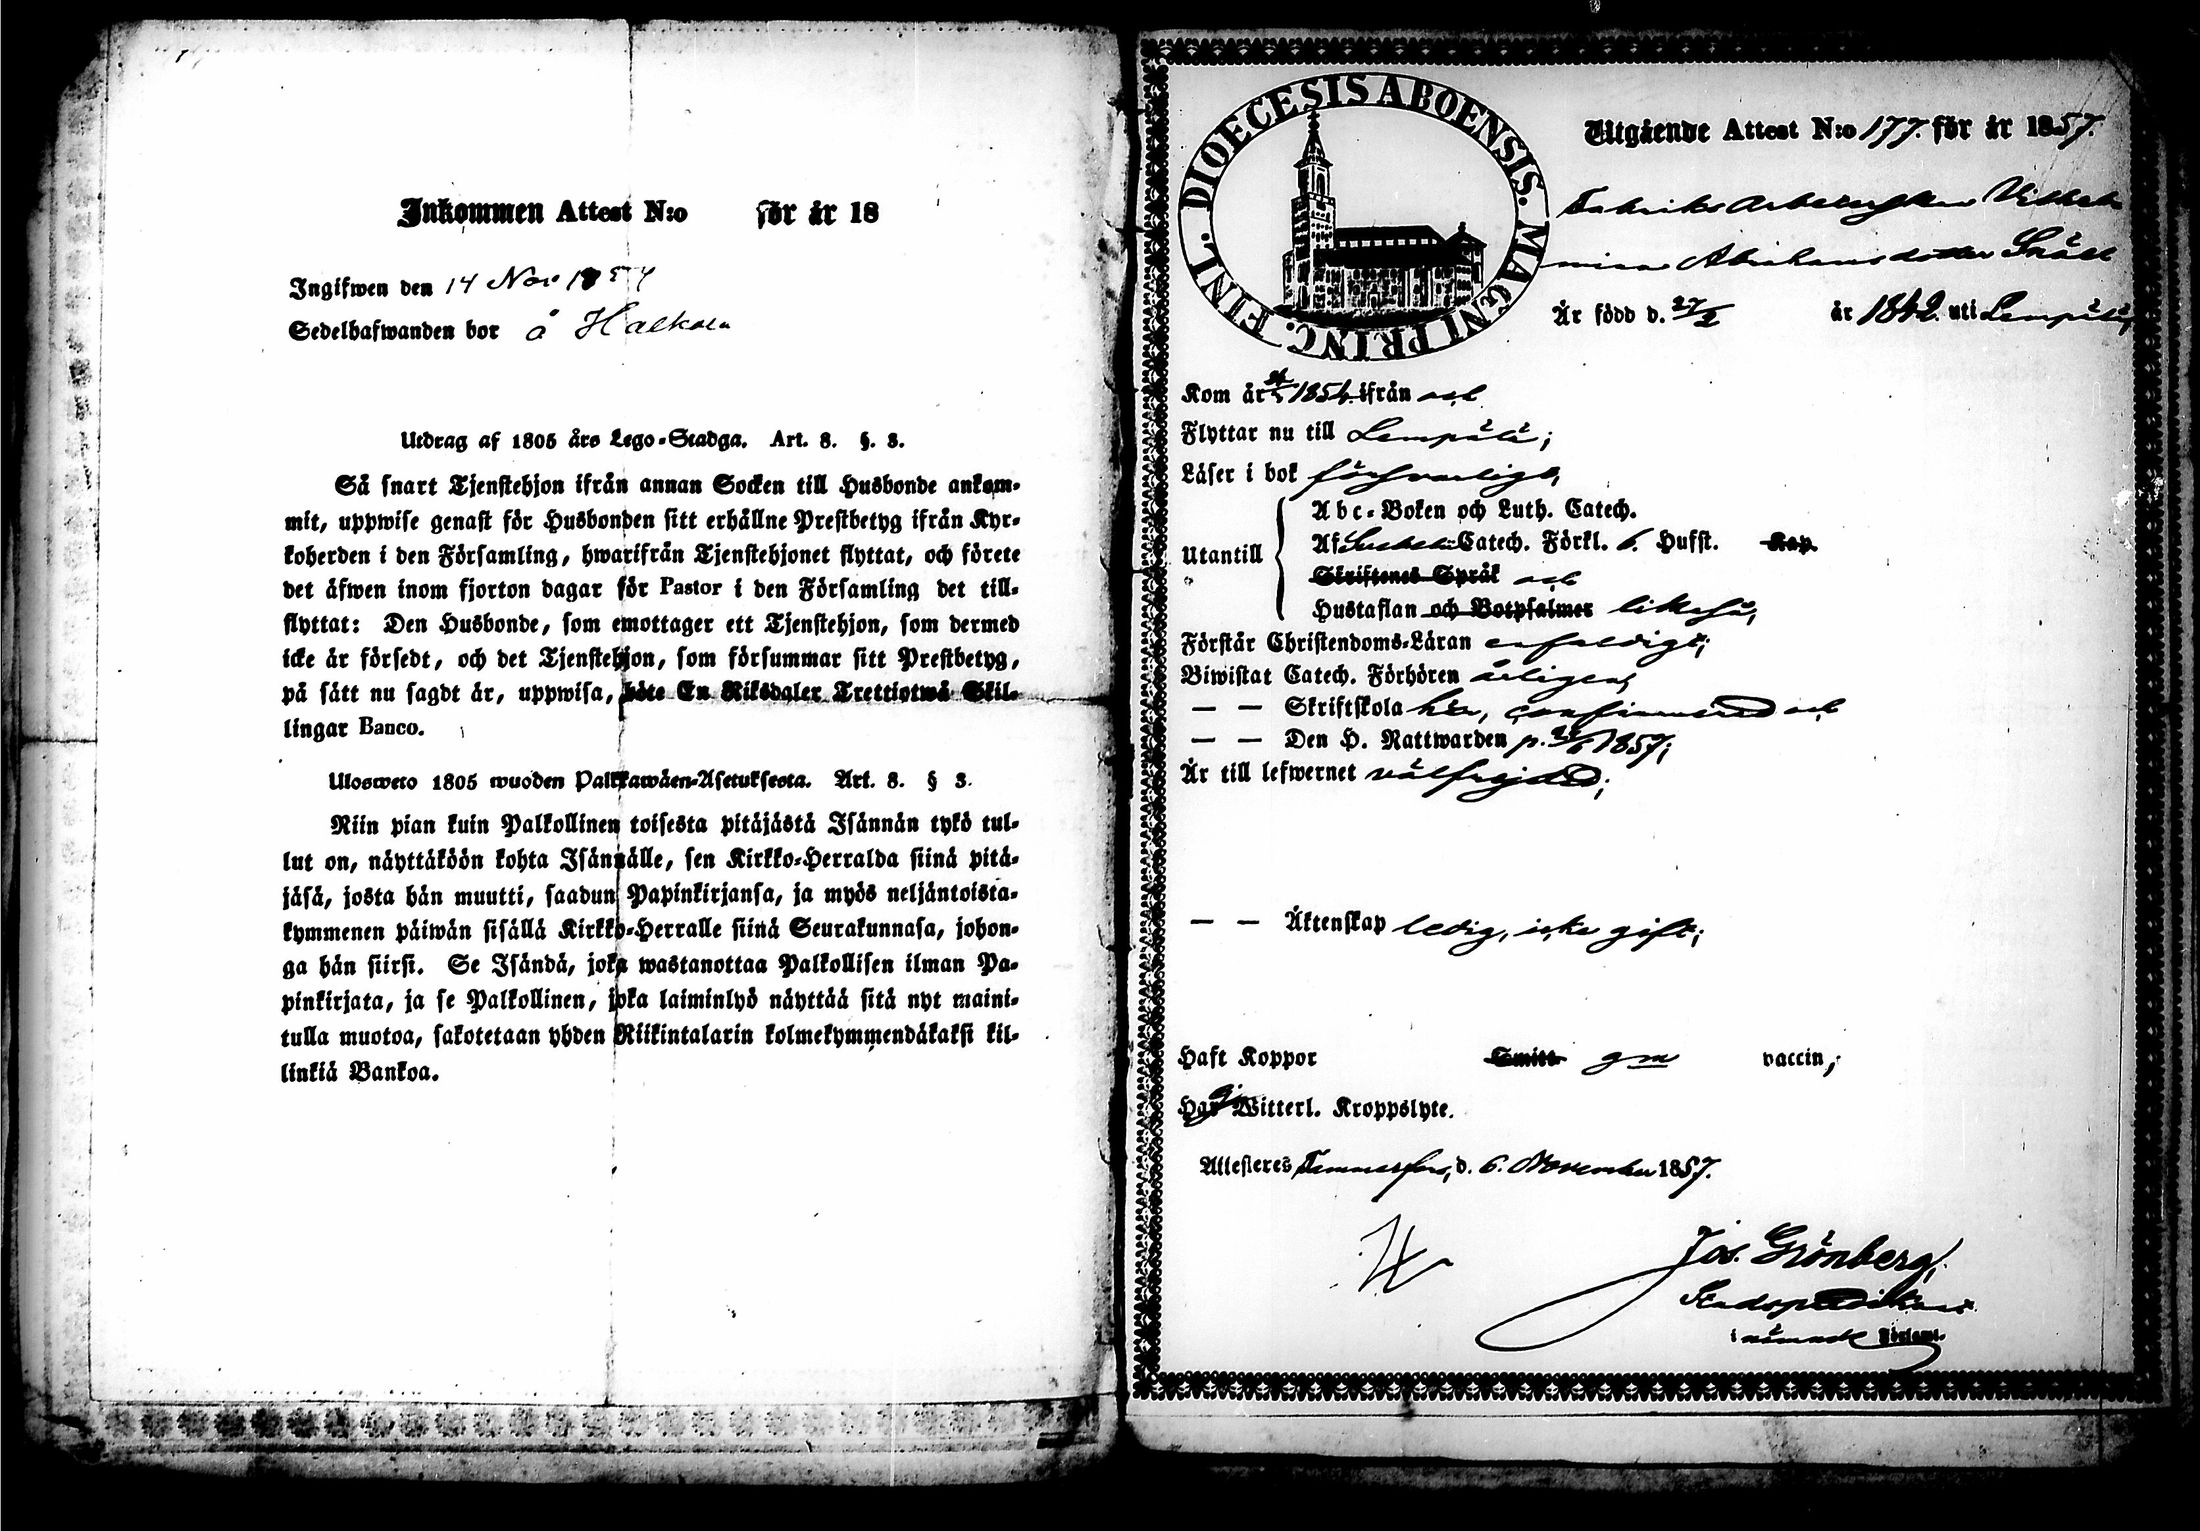 Inkommen Attest N:o för år 18
Ingifwen den 14 Nov 1857
Sedelhafwanden bor å
Utdrag af 1805 års Lego-Stadga. Art. 8. §. 3.
Så snart Tjenstehjon ifrån annan Socken till Husbonde ankom-
mit, uppwise genast för Husbonden sitt erhållne Prestbetyg ifrån Kyr-
koherden i den Församling, hwarifrån Tjenstehjonet flyttat, och förete
det äfwen inom fjorton dagar för Pastor i den Församling det till-
flyttat: Den Husbonde, som emottager ett Tjenstehjon, som dermed
icke är försedt, och det Tjenstehjon, som försummar sitt Prestbetyg,
på sätt nu sagdt är, uppwisa, böte En Riksdaler Trettiotwå Skil-
lingar Banco.
Ulosweto 1805 wuoden Palkkawäen-Asetuksesta. Art. 8. § 3.
Niin pian kuin Palkollinen toisesta pitäjästä Isännän tykö tul-
lut on, näyttäköön kohta Isännälle, sen Kirkko-Herralda siinä pitä-
jäsä, josta hän muutti, saadun Papinkirjansa, ja myös neljäntoista-
kymmenen päiwän sisällä Kirkko-Herralle siinä Seurakunnasa, johon-
ga hän siirsi. Se Isändä, joka wastanottaa Palkollisen ilman Pa-
pinkirjata, ja se Palkollinen, joka laiminlyö näyttää sitä nyt maini-
tulla muotoa, sakotetaan yhden Riikintalarin kolmekymmendäkaksi kil-
linkiä Bankoa.
DIOECESIS ABOENSIS. MAGNI PRINC. FINL.
Utgående Attest N:o 177. för år 1857.
Fabriks Vilhel
mina Abrahamsdotter Skäll
Är född d. 27/2 år 1842. uti Lempälä,
Kom år 1854. ifrån
Flyttar nu till Lempälä;
Läser i bok försvarligt,
Utantill
Abc-Boken och Luth. Catech.
Af Catech. Förkl. 6. Hufst. Kap.
Skriftenes Språk och
Hustaflan och Botpsalmer likaså,
Förstår Christendoms-Läran enfaldigt;
Biwistat Catech. Förhören årligen,
— — Skriftskola här, confirmerad och
— — Den H. Nattwarden p. 1857;
Är till lefwernet välfrejdad;
— — Äktenskap ledig, icke gift;
Haft Koppor Smitt gm vaccin,
Har ej Witterl. Kroppslyte.
Attesteres Tammerfors, d. 6. November 1857.
Jos. Grönberg,
Stadspredikant
i nämnde Församl.